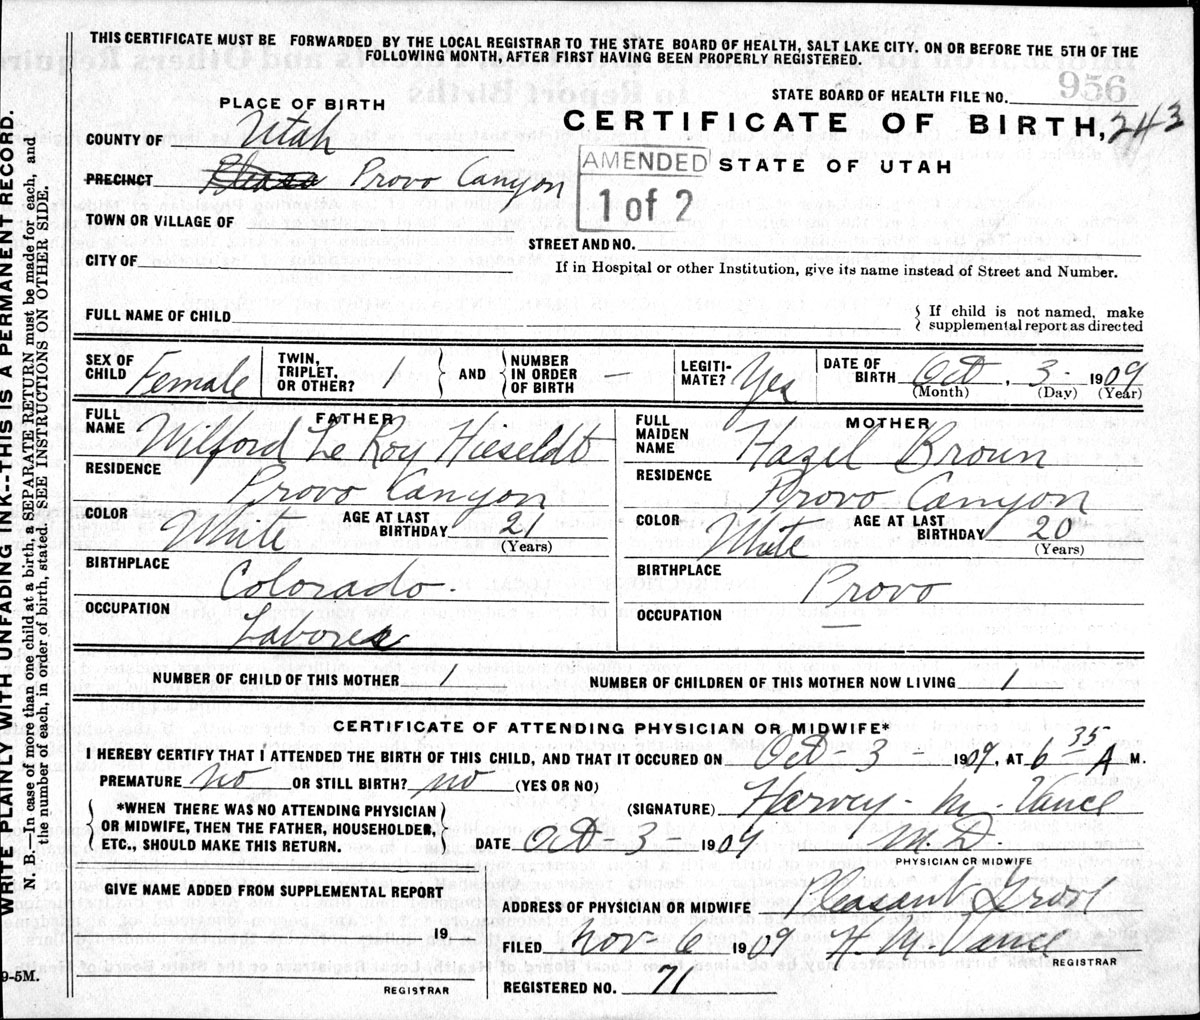 THIS CERTIFICATE MUST BE FORWARDED BY THE LOCAL REGISTRAR TO THE STATE BOARD OF HEALTH, SALT LAKE CITY. ON OR BEFORE THE 5TH OF THE
FOLLOWING MONTH, AFTER FIRST HAVING BEEN PROPERLY REGISTERED.
956
STATE BOARD OF HEALTH FILE NO.
PLACE OF BIRTH
CERTIFICATE OF BIRTH, 243
COUNTY OF Utah
AMENDED
1 of 2
STATE OF UTAH
PRECINCT Provo Canyon
TOWN OR VILLAGE OF
STREET AND NO.
CITY OF
If in Hospital or other Institution, give its name instead of Street and Number.
FULL NAME OF CHILD
{ If child is not named, make
supplemental report as directed
SEX OF CHILD Female
TWIN, TRIPLET, OR OTHER? 1
} AND {
NUMBER IN ORDER OF BIRTH —
LEGITI-MATE? Yes
DATE OF BIRTH Oct. 3- 1909
(Month) (Day) (Year)
FATHER
FULL NAME Wilford Le Roy Hieseldt
RESIDENCE
Provo Canyon
COLOR White AGE AT LAST BIRTHDAY 21
(Years)
BIRTHPLACE
Colorado.
OCCUPATION
Laborer
MOTHER
FULL MAIDEN NAME Hazel Brown
RESIDENCE
Provo Canyon
COLOR White AGE AT LAST BIRTHDAY 20
(Years)
BIRTHPLACE
Provo
OCCUPATION —
NUMBER OF CHILD OF THIS MOTHER 1 NUMBER OF CHILDREN OF THIS MOTHER NOW LIVING 1
CERTIFICATE OF ATTENDING PHYSICIAN OR MIDWIFE*
I HEREBY CERTIFY THAT I ATTENDED THE BIRTH OF THIS CHILD, AND THAT IT OCCURED ON Oct-3- 1909, AT 6 35 A M.
PREMATURE no OR STILL BIRTH? no (YES OR NO)
(SIGNATURE) Harvey - M. Vance
{ *WHEN THERE WAS NO ATTENDING PHYSICIAN
OR MIDWIFE, THEN THE FATHER, HOUSEHOLDER,
ETC., SHOULD MAKE THIS RETURN. }
DATE Oct-3- 1909 M.D.
PHYSICIAN OR MIDWIFE
GIVE NAME ADDED FROM SUPPLEMENTAL REPORT
19
REGISTRAR
ADDRESS OF PHYSICIAN OR MIDWIFE Pleasant Grove
FILED Nov 6 1909 H. M. Vance
REGISTRAR
REGISTERED NO. 71
WRITE PLAINLY WITH UNFADING INK--THIS IS A PERMANENT RECORD.
N. B.—In case of more than one child at a birth, a SEPARATE RETURN must be made for each, and
the number of each, in order of birth, stated. SEE INSTRUCTIONS ON OTHER SIDE.
9-5M.